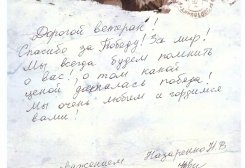 Дорогой ветеран!
Спасибо за Победу! За мир!
Мы всегда будем помнить
о вас! о том какой
ценой досталась победа!
Мы очень любим и гордимся
вами!
уважением Назаренко Н.В